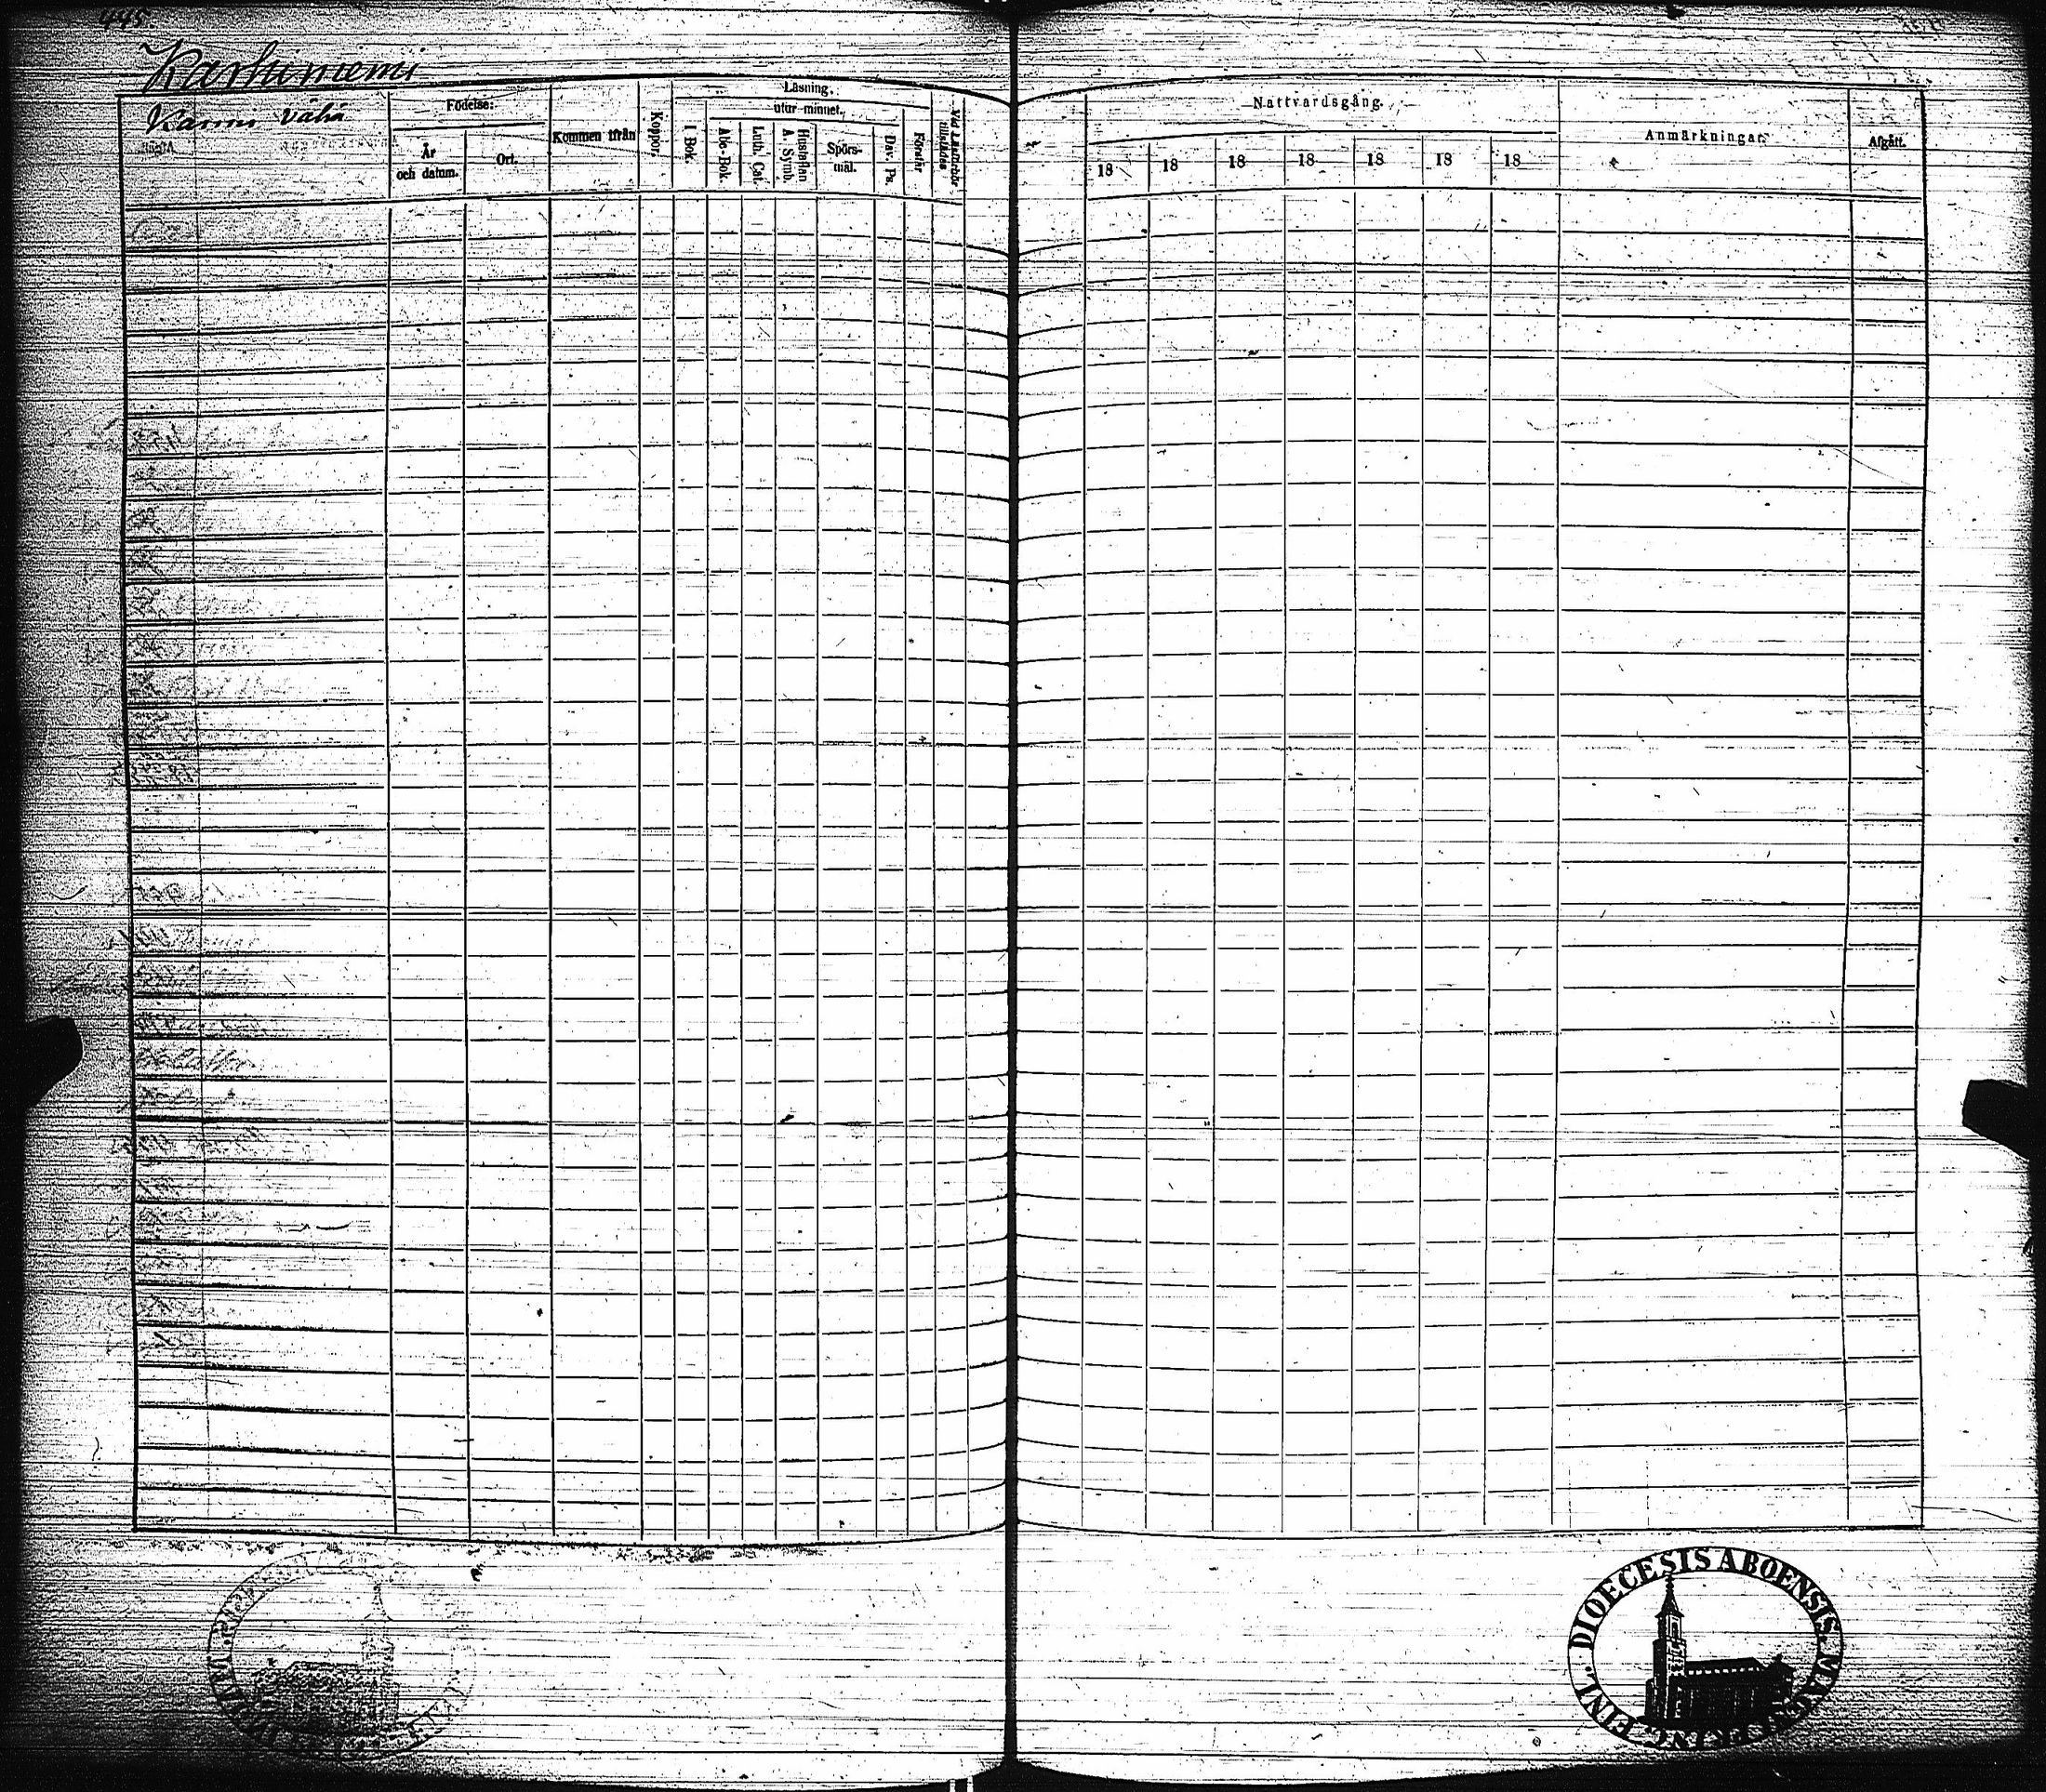 445
Karhuniemi
Kanni vähä
Födelse:
År
och datum.
Ort.
Kommen ifrån
Koppor.
Läsning.
utur minnet.
I Bok.
Abc-Bok.
Luth. Cat.
Hustaflan
A. Symb.
Spörs-
mål.
Dav. Ps.
Förstår
Vid Läsförhör
tillstädes
Nattvardsgång.
18 18 18 18 18 18 18
Anmärkningar.
Afgått.
DIOECESIS ABOENSIS.